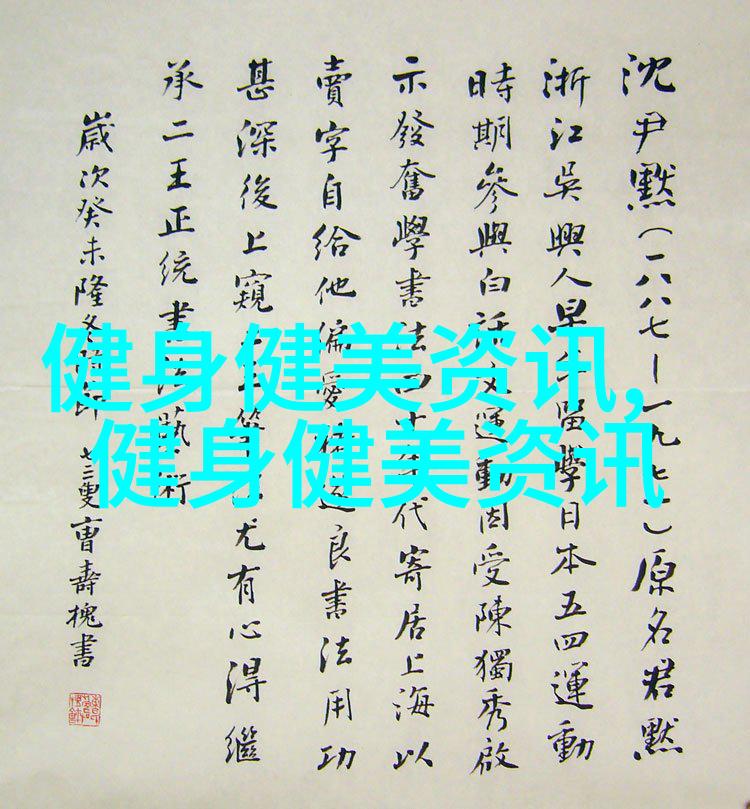 沈尹默(一八八七—一九七一)原名君默
浙江吳興人早年留學日本五四運動
時期參與白話文運動因受陳獨秀啟
示發奮學書法四十年代寄居上海以
賣字自給他偏愛遂良書法用功
甚深後上窺尤有心得繼
承二王正統書法藝術
歲次癸未隆冬時節 七三叟曹壽槐書
健身健美资讯,
健身健美资讯